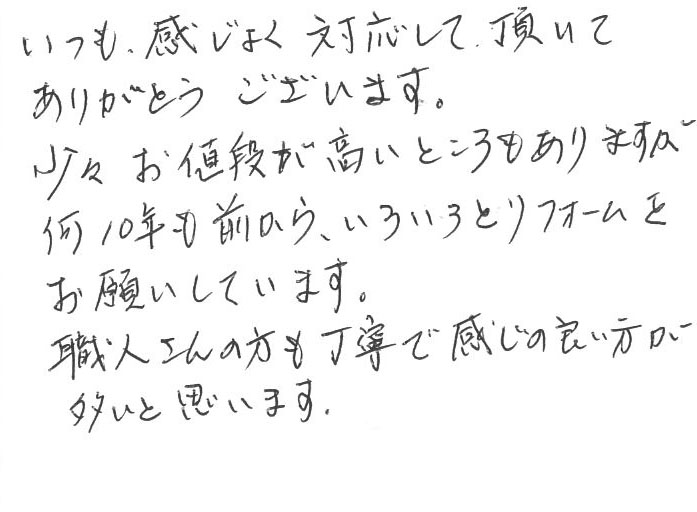 いつも、感じよく対応して頂いて
ありがとうございます。
少々お値段が高いところもありますが
何10年も前から、いろいろとリフォームを
お願いしています。
職人さんの方も丁寧で感じの良い方が
多いと思います.